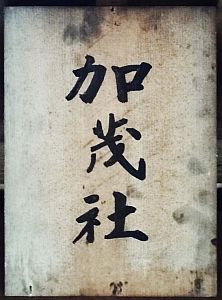 加茂社